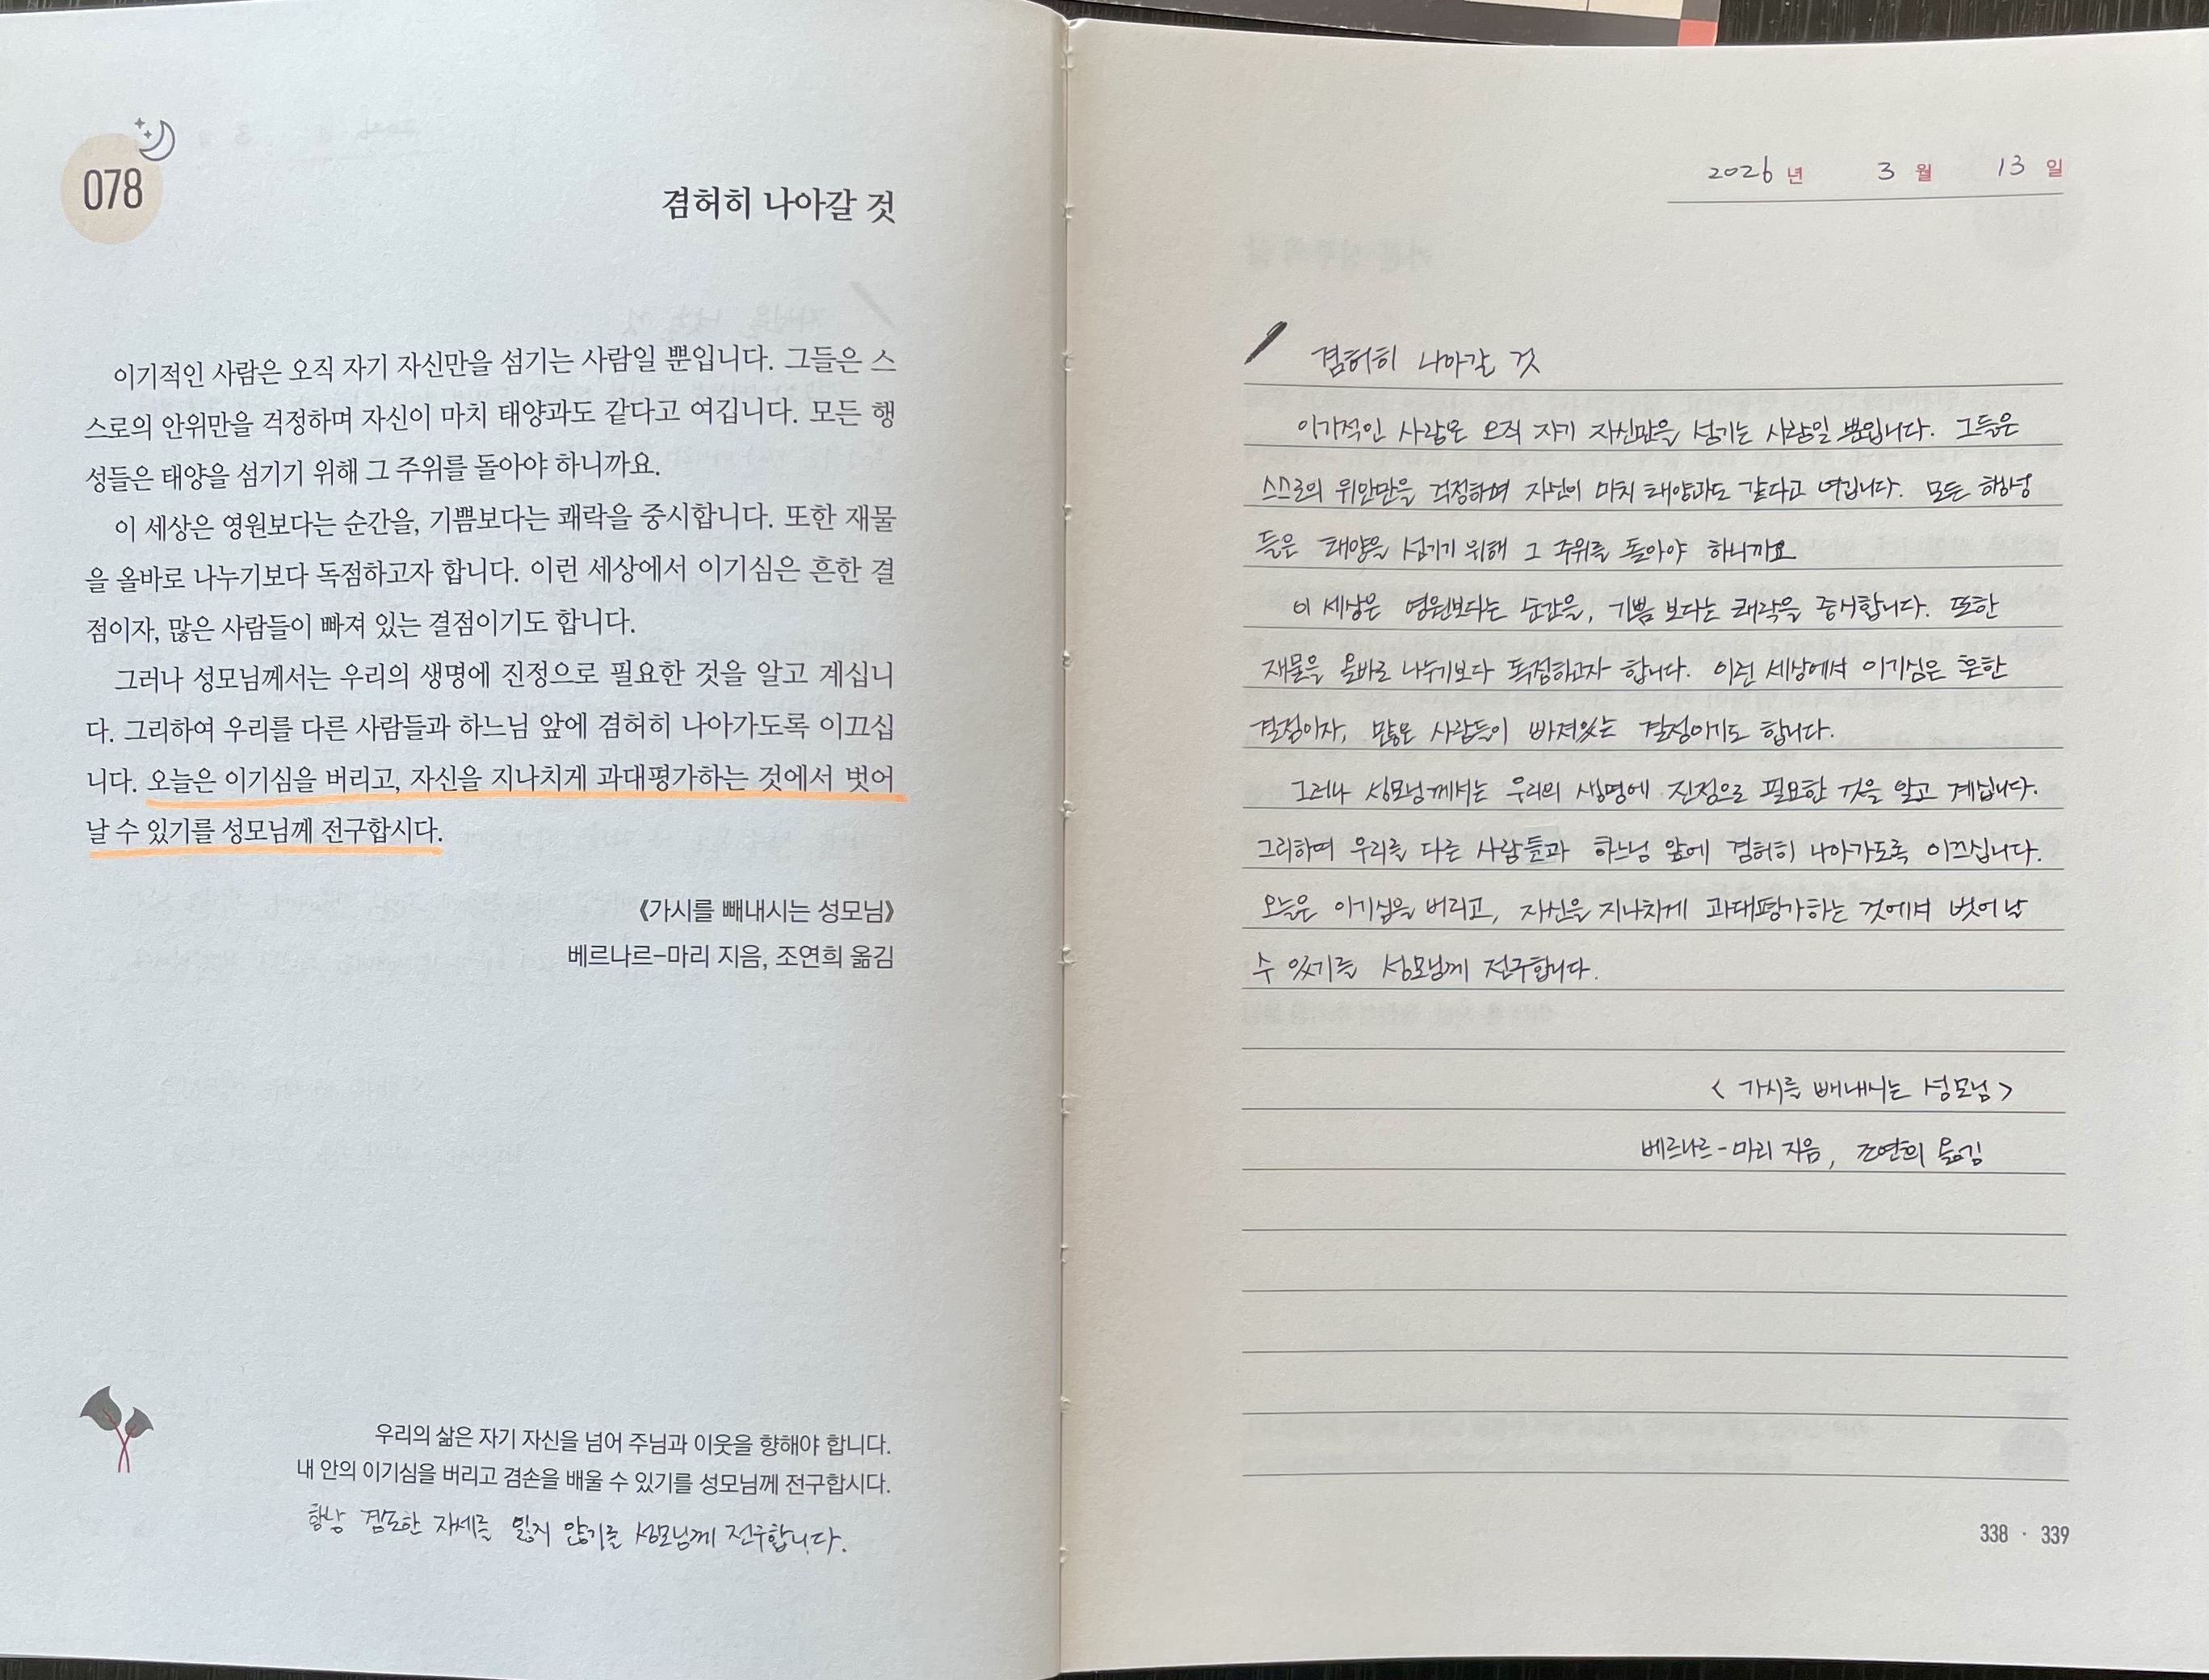 078
겸허히 나아갈 것
이기적인 사람은 오직 자기 자신만을 섬기는 사람일 뿐입니다. 그들은 스
스로의 안위만을 걱정하며 자신이 마치 태양과도 같다고 여깁니다. 모든 행
성들은 태양을 섬기기 위해 그 주위를 돌아야 하니까요.
이 세상은 영원보다는 순간을, 기쁨보다는 쾌락을 중시합니다. 또한 재물
을 올바로 나누기보다 독점하고자 합니다. 이런 세상에서 이기심은 흔한 결
점이자, 많은 사람들이 빠져 있는 결점이기도 합니다.
그러나 성모님께서는 우리의 생명에 진정으로 필요한 것을 알고 계십니
다. 그리하여 우리를 다른 사람들과 하느님 앞에 겸허히 나아가도록 이끄십
니다. 오늘은 이기심을 버리고, 자신을 지나치게 과대평가하는 것에서 벗어
날 수 있기를 성모님께 전구합시다.
《가시를 빼내시는 성모님》
베르나르-마리 지음, 조연희 옮김
우리의 삶은 자기 자신을 넘어 주님과 이웃을 향해야 합니다.
내 안의 이기심을 버리고 겸손을 배울 수 있기를 성모님께 전구합시다.
항상 겸손한 자세를 잃지 않기를 성모님께 전구합니다.
2026 년 3 월 13 일
겸허히 나아갈 것
이기적인 사람은 오직 자기 자신만을 섬기는 사람일 뿐입니다. 그들은
스스로의 위안만을 걱정하며 자신이 마치 태양과도 같다고 여깁니다. 모든 행성
들은 태양을 섬기기 위해 그 주위를 돌아야 하니까요
이 세상은 영원보다는 순간을, 기쁨 보다는 쾌락을 중시합니다. 또한
재물을 올바로 나누기보다 독점하고자 합니다. 이런 세상에서 이기심은 흔한
결점이자, 많은 사람들이 빠져있는 결점이기도 합니다.
그러나 성모님께서는 우리의 생명에 진정으로 필요한 것을 알고 계십니다.
그리하여 우리를 다른 사람들과 하느님 앞에 겸허히 나아가도록 이끄십니다.
오늘은 이기심을 버리고, 자신을 지나치게 과대평가하는 것에서 벗어날
수 있기를 성모님께 전구합니다.
< 가시를 빼내시는 성모님 >
베르나르-마리 지음, 조연희 옮김
338 · 339